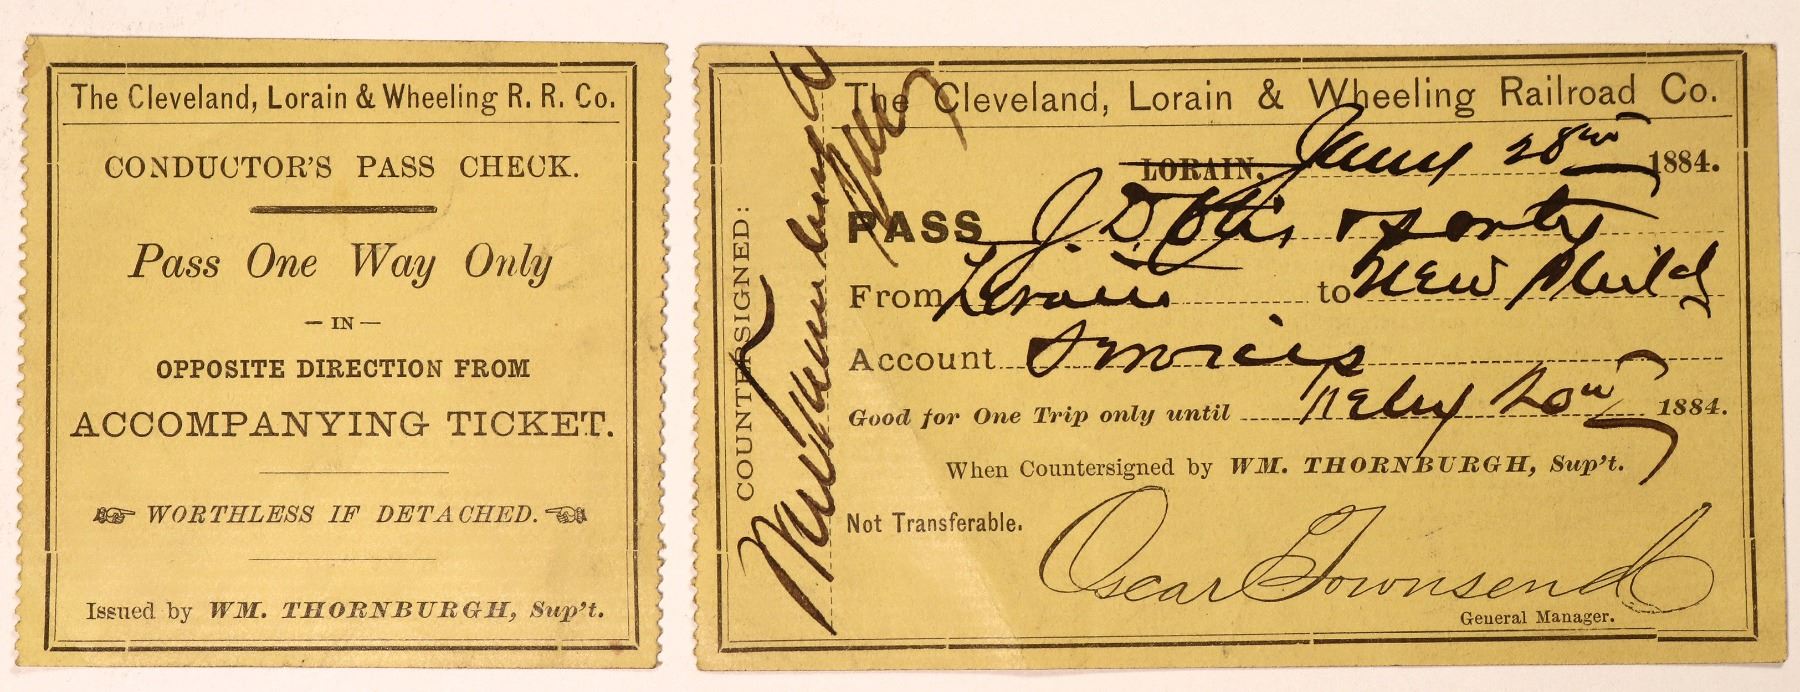 The Cleveland, Lorain & Wheeling R. R. Co.
CONDUCTOR'S PASS CHECK.
Pass One Way Only
— IN —
OPPOSITE DIRECTION FROM
ACCOMPANYING TICKET.
WORTHLESS IF DETACHED.
Issued by WM. THORNBURGH, Sup't.
COUNTERSIGNED:
The Cleveland, Lorain & Wheeling Railroad Co.
LORAIN, Jany 28th 1884.
PASS J. D. Otis & party
From Lorain to New Phila
Account Services
Good for One Trip only until Feby 20th 1884.
When Countersigned by WM. THORNBURGH, Sup't.
Not Transferable.
Oscar Townsend
General Manager.